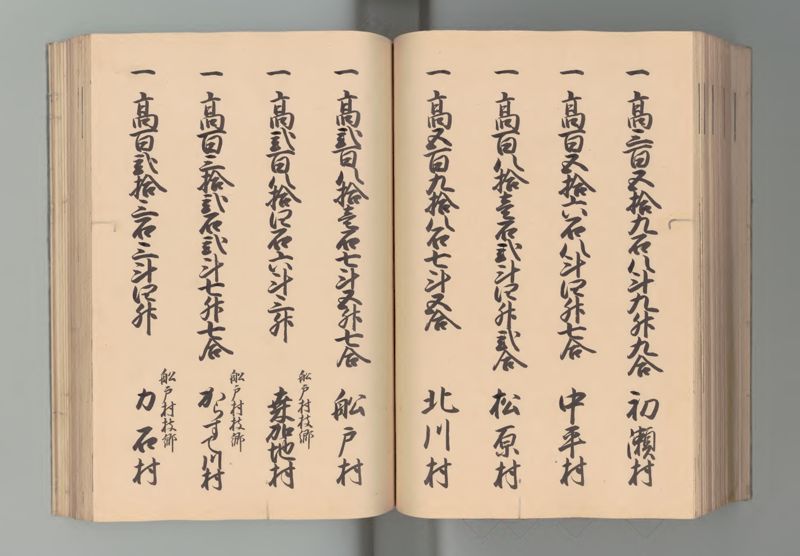 一 高三百五拾九石八斗九升九合 初瀬村
一 高百五拾六石八斗四升七合 中平村
一 高百八拾壱石弐斗四升弐合 松原村
一 高五百九拾八石七斗五合 北川村
一 高弐百八拾壱石七斗五升七合 船戸村
一 高弐百八拾四石六斗三升 船戸村枝郷 桑加地村
一 高百三拾弐石弐斗七升七合 船戸村枝郷 からすて川村
一 高百弐拾三石三斗四升 船戸村枝郷 力石村